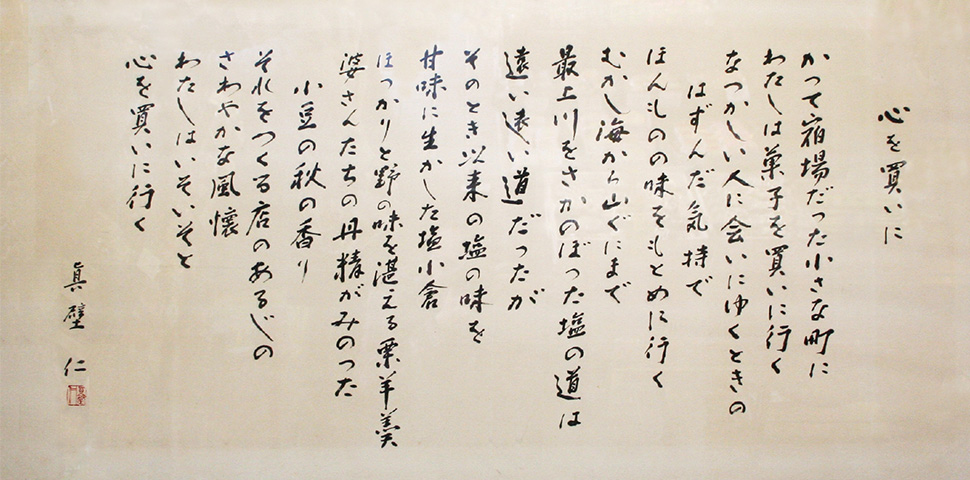 心を買いに
かつて宿場だった小さな町に
わたしは菓子を買いに行く
なつかしい人に会いにゆくときの
はずんだ気持で
ほんものの味をもとめに行く
むかし海から山ぐにまで
最上川をさかのぼった塩の道は
遠い遠い道だったが
そのとき以来の塩の味を
甘味に生かした塩小倉
ほっかりと野の味を湛える栗羊羹
婆さんたちの丹精がみのった
小豆の秋の香り
それをつくる店のあるじの
さわやかな風懐
わたしはいそいそと
心を買いに行く
真壁仁